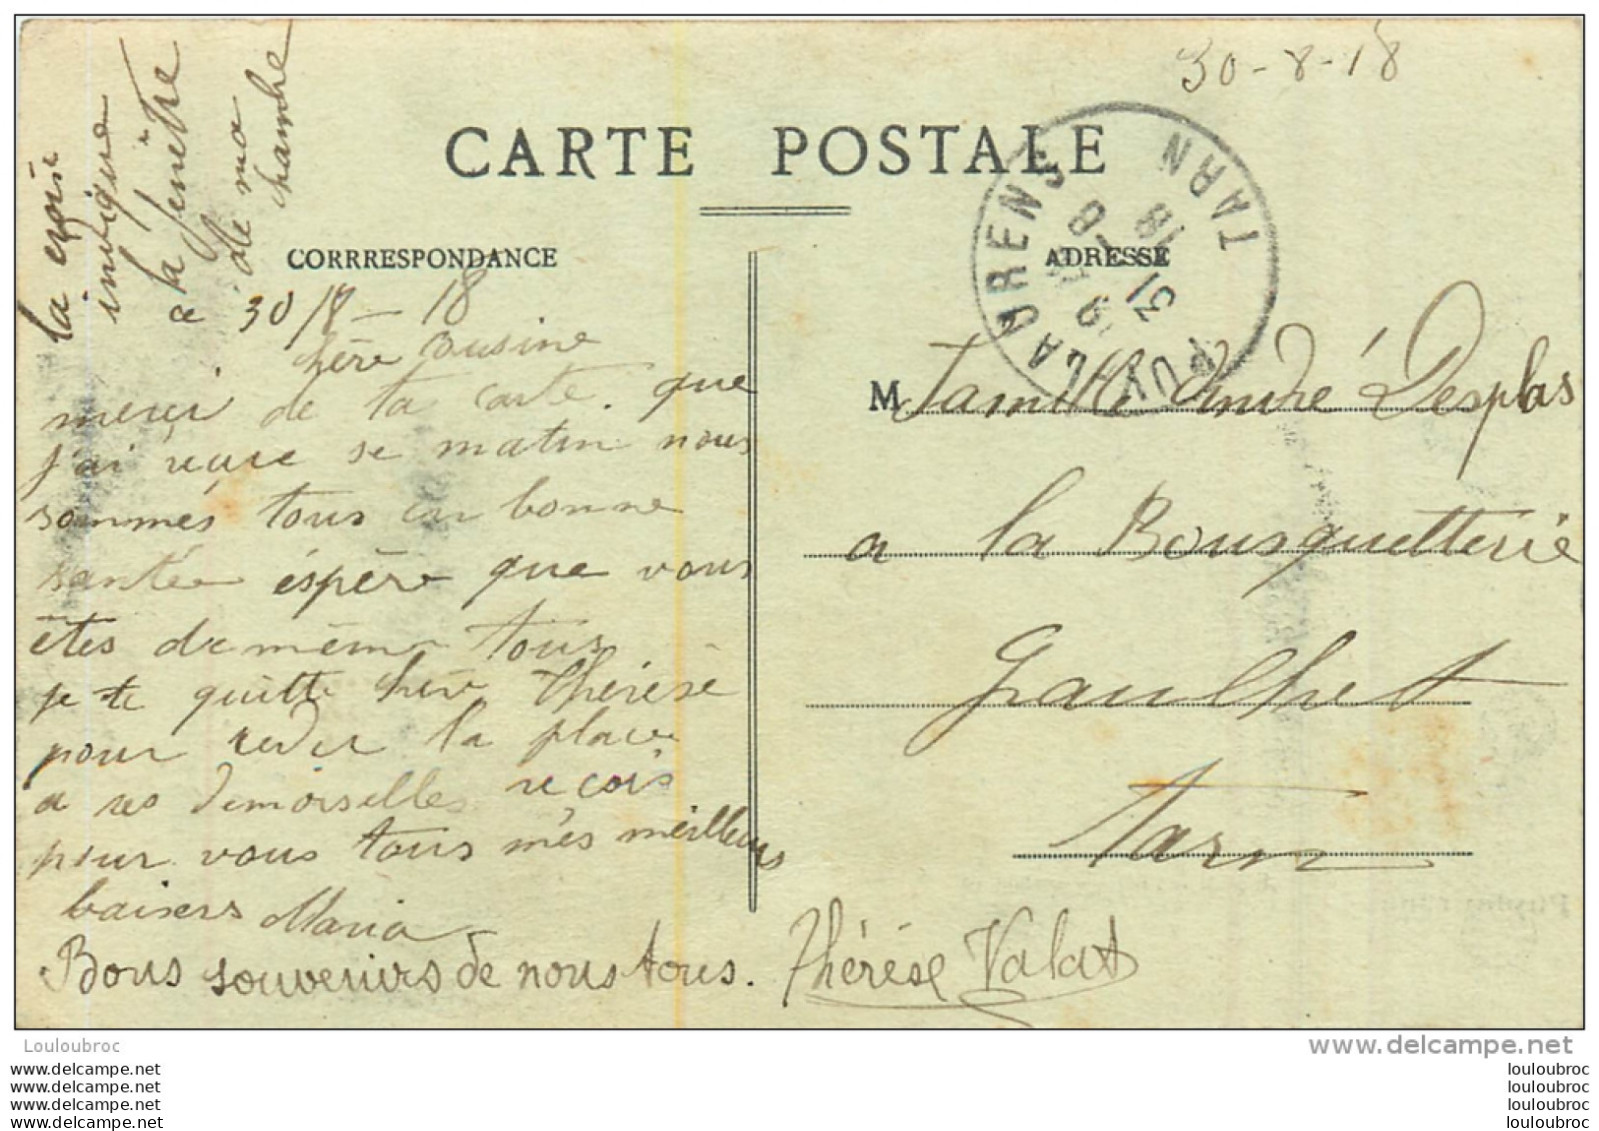 30-8-18
CARTE POSTALE
la croix
indique
la fenêtre
de ma
chambre
CORRRESPONDANCE
ADRESSE
PUYLAURENS TARN
31 8 18
ce 30/8-18
chère Cousine
merci de ta carte. que
j'ai reçue se matin nous
sommes tous en bonne
santée éspère que vous
êtes de même tous
je te quitte chère Thérèse
pour ceder la place
a ses Demoiselles reçois
pour vous tous mes meilleurs
baisers Maria
Bons souvenirs de nous tous. Thérèse Valat
M Famille André Desplas
a la Bousquetterie
Graulhet
Tarn
Louloubroc
www.delcampe.net
www.delcampe.net
www.delcampe.net
www.delcampe.net
www.delcampe.net
louloubroc
louloubroc
louloubroc
louloubroc